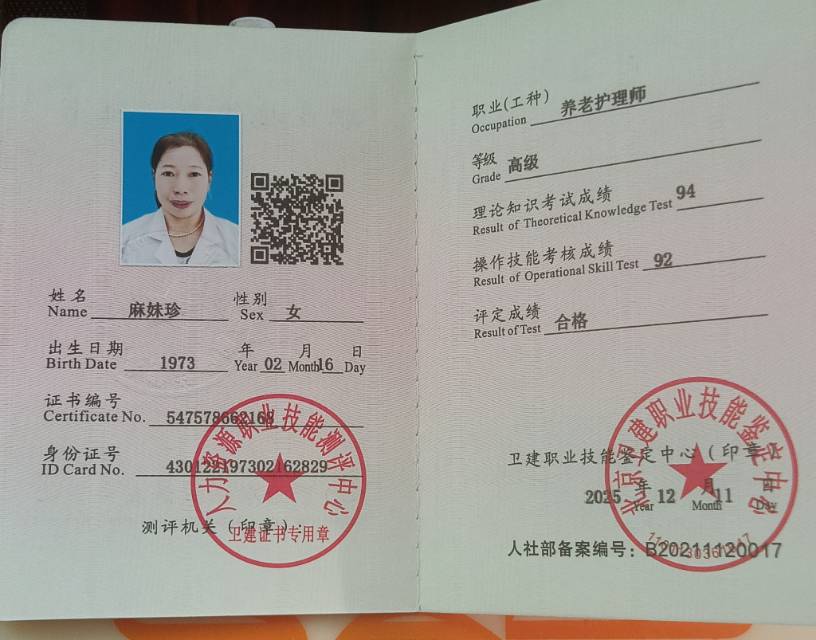 姓名 麻妹珍 性别 女
Name Sex
出生日期 1973 年 02 月 16 日
Birth Date Year Month Day
证书编号
Certificate No. 547578662168
身份证号
ID Card No. 430122197302162829
测评机关（印章）：
人力资源职业技能测评中心
卫建证书专用章
职业(工种) 养老护理师
Occupation
等级 高级
Grade
理论知识考试成绩 94
Result of Theoretical Knowledge Test
操作技能考核成绩 92
Result of Operational Skill Test
评定成绩 合格
Result of Test
卫建职业技能鉴定中心（印章）
2025 年 12 月 11 日
Year Month Day
北京卫建职业技能鉴定中心
人社部备案编号：B20211120017